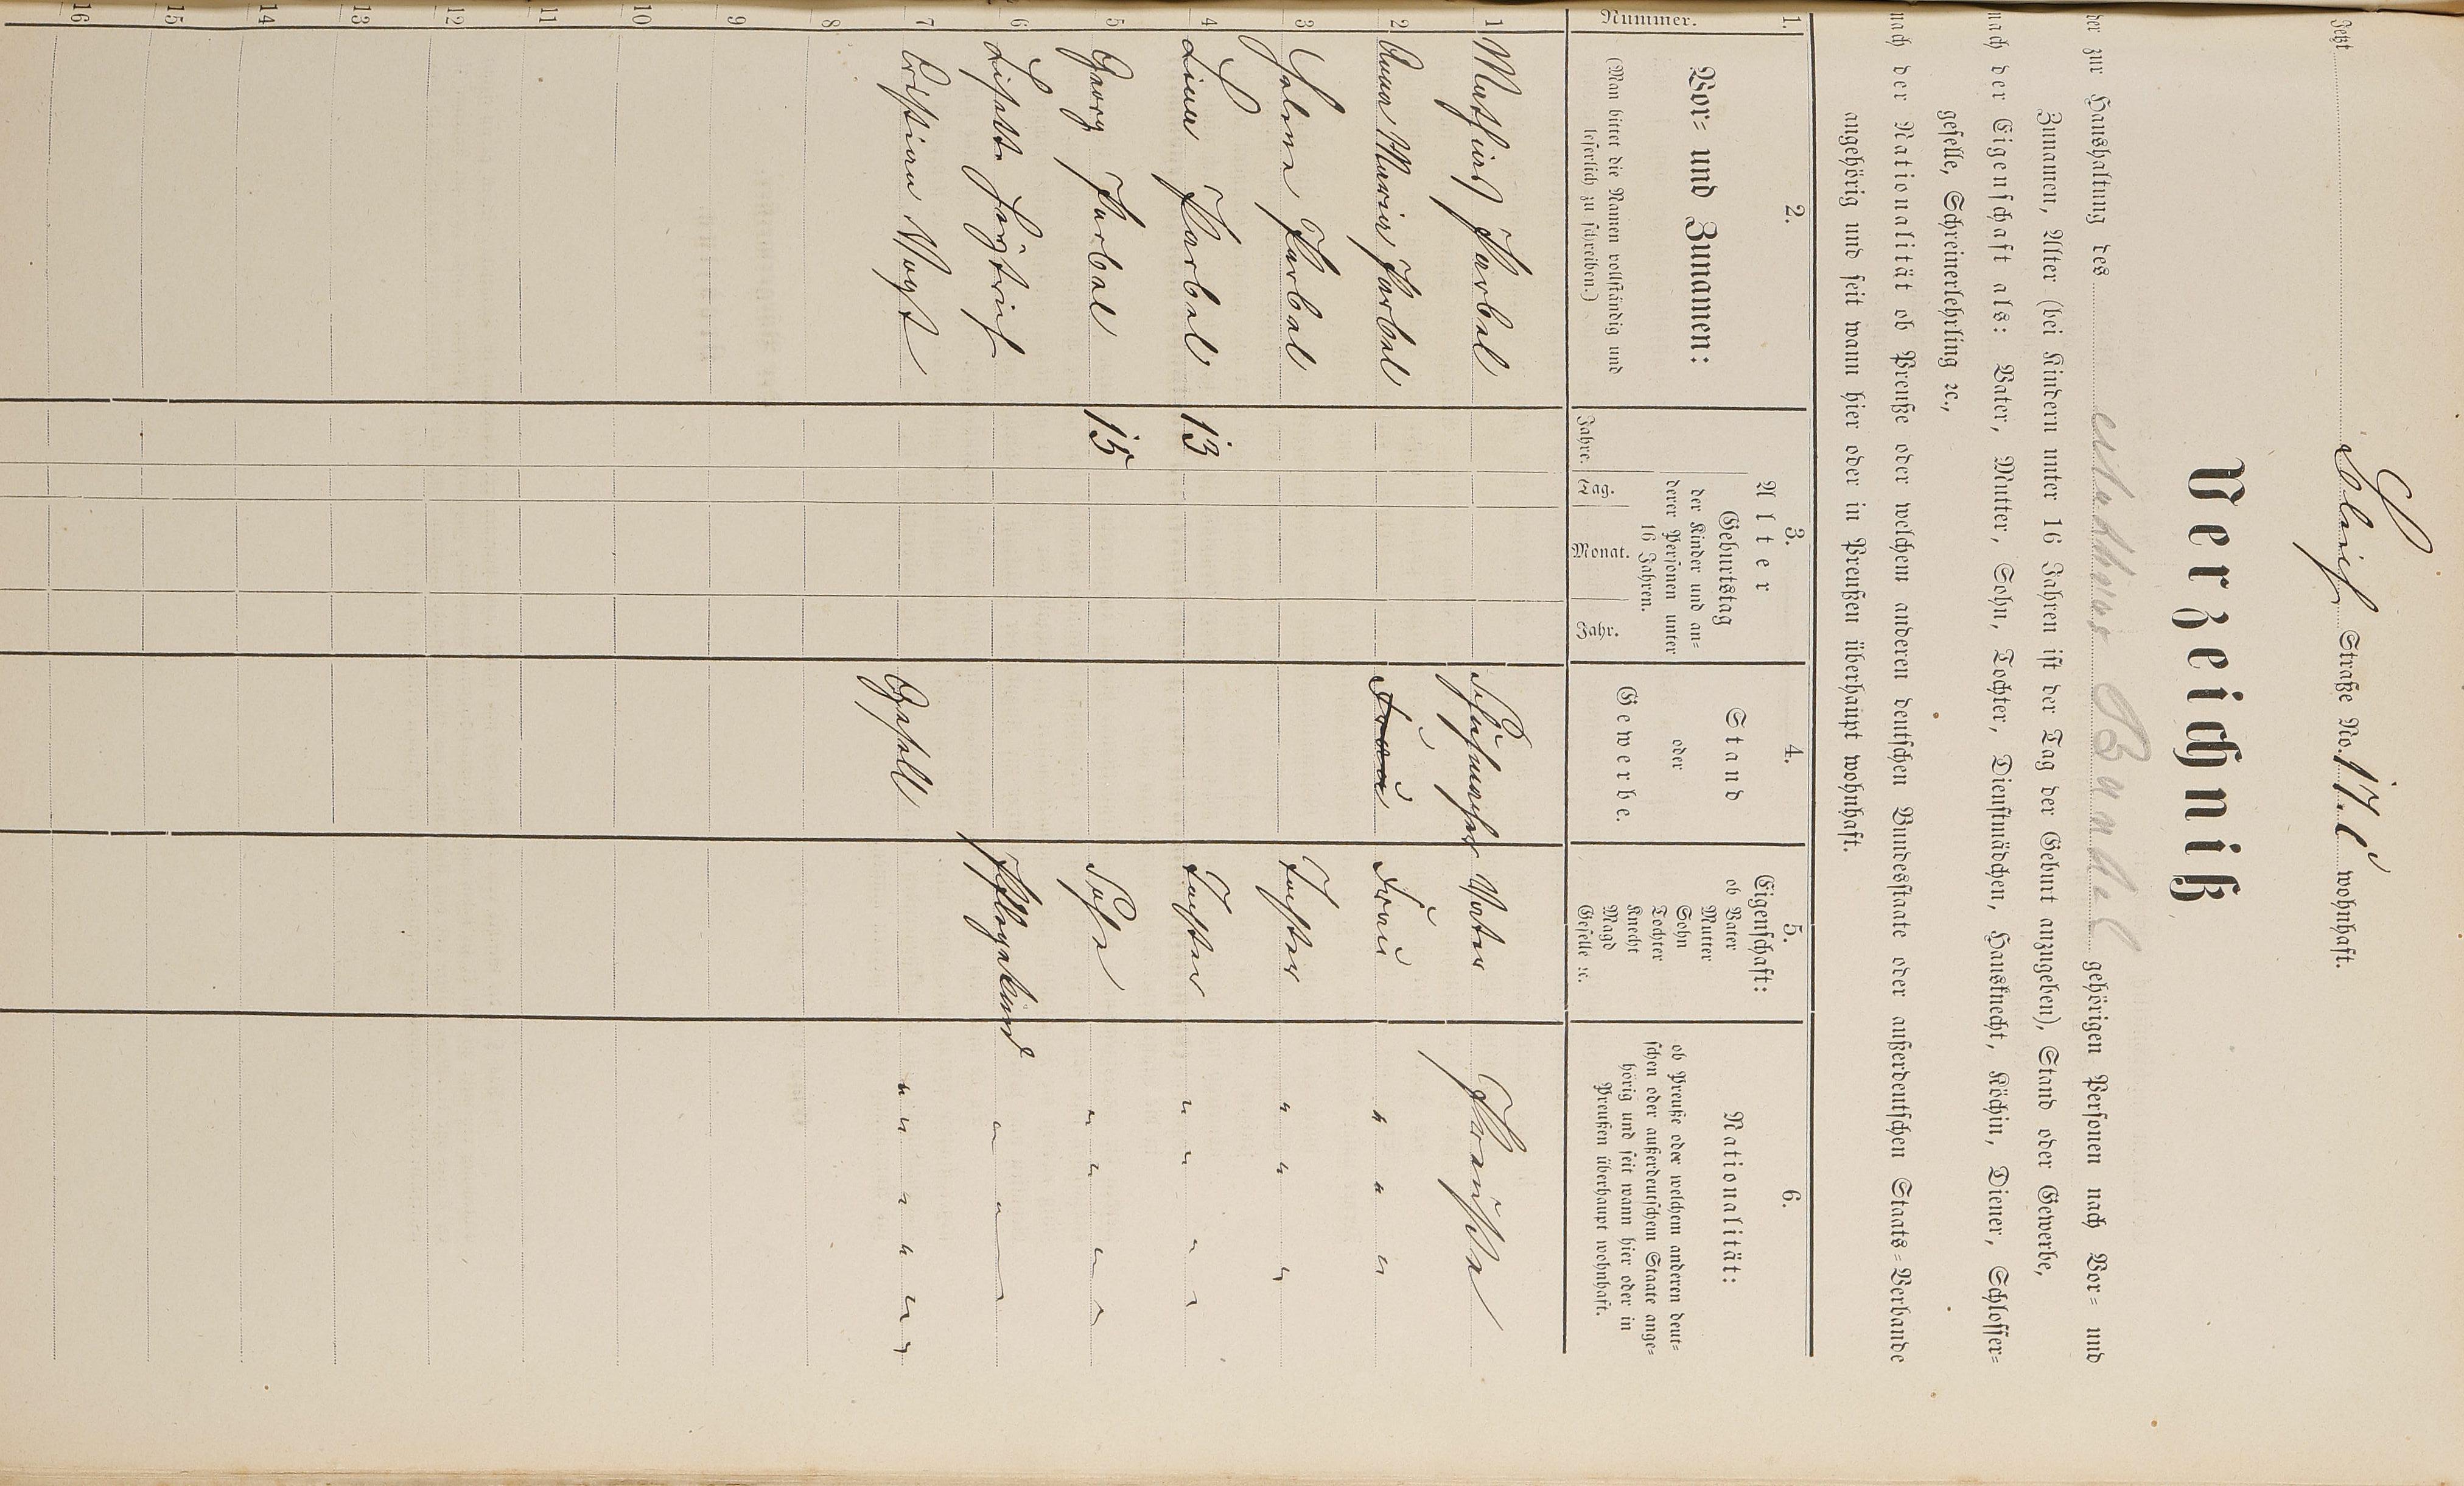 Jetzt Bleich Straße No. 17.c wohnhaft.
Verzeichniß
der zur Haushaltung des gehörigen Personen nach Vor- und
Zunamen, Alter (bei Kindern unter 16 Jahren ist der Tag der Geburt anzugeben), Stand oder Gewerbe,
nach der Eigenschaft als: Vater, Mutter, Sohn, Tochter, Dienstmädchen, Hausknecht, Köchin, Diener, Schlosser-
geselle, Schreinerlehrling ꝛc.,
nach der Nationalität ob Preuße oder welchem anderen deutschen Bundesstaate oder außerdeutschen Staats-Verbande
angehörig und seit wann hier oder in Preußen überhaupt wohnhaft.
1. 2. 3. 4. 5. 6.
Nummer.
Vor- und Zunamen:
(Man bittet die Namen vollständig und
leserlich zu schreiben.)
Alter
Geburtstag
der Kinder und an-
derer Personen unter
16 Jahren.
Jahre. Tag. Monat. Jahr.
Stand
oder
Gewerbe.
Eigenschaft:
ob Vater
Mutter
Sohn
Tochter
Knecht
Magd
Geselle ꝛc.
Nationalität:
ob Preuße oder welchem anderen deut-
schen oder außerdeutschem Staate ange-
hörig und seit wann hier oder in
Preußen überhaupt wohnhaft.
1 Mathias Barbel Schuhmacher Vater Preuße
2 Anna Maria Barbel Frau Frau " " "
3 Barbel Tochter " " "
4 Lina Barbel 13 Tochter " " " "
5 Georg Barbel 15 Sohn " " " "
6 Lisette Pflegekind " " "
7 Cristian Vogt Gesell " " " " " "
8
9
10
11
12
13
14
15
16